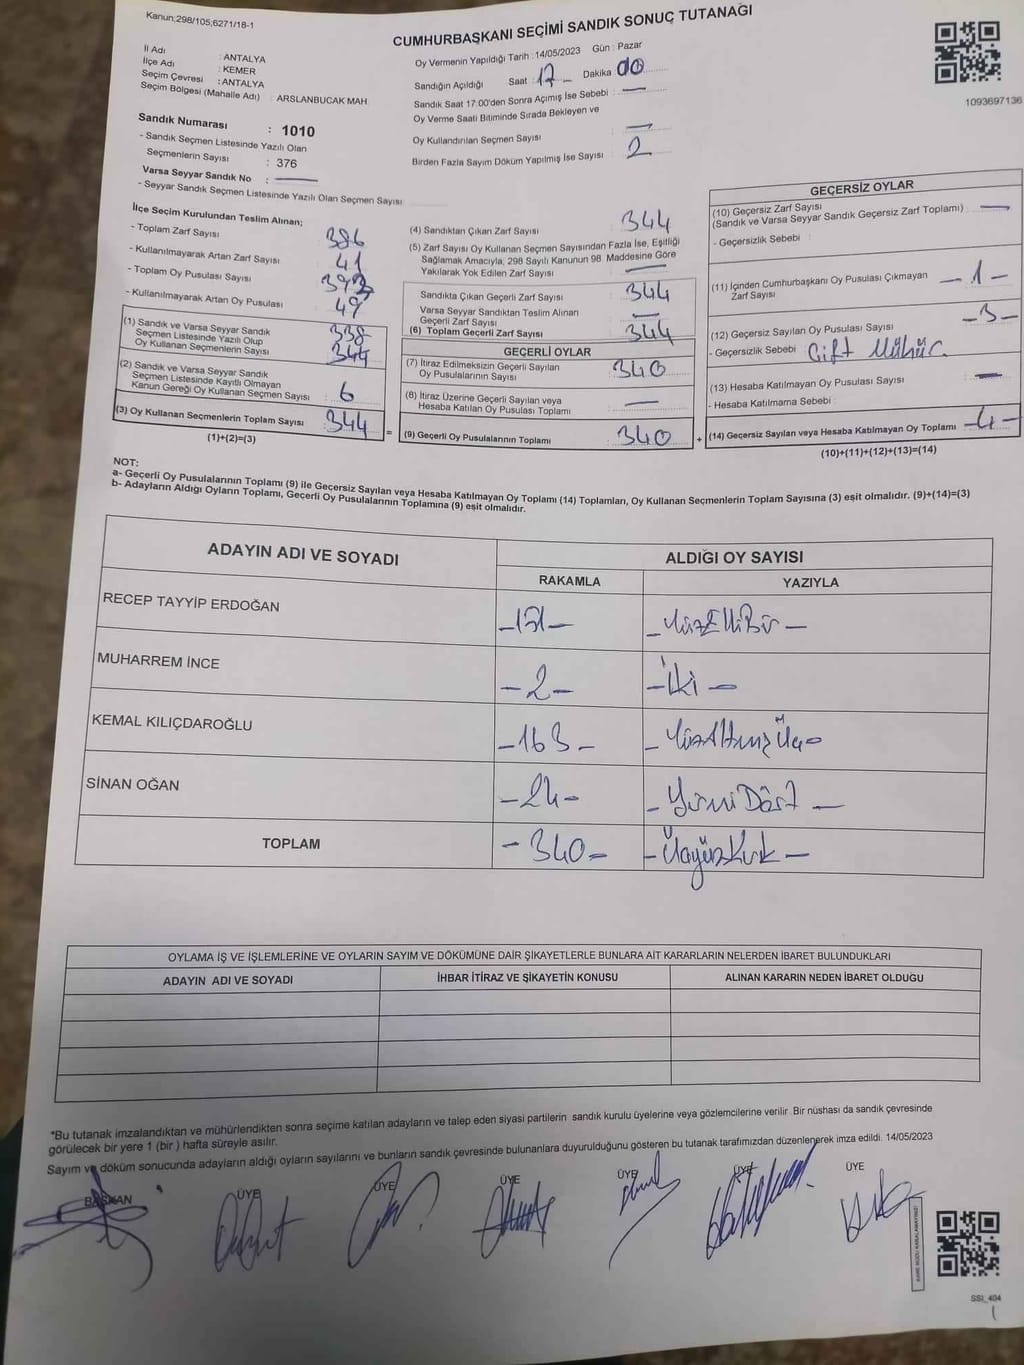 Kanun;298/105,6271/18-1
CUMHURBAŞKANI SEÇİMİ SANDIK SONUÇ TUTANAĞI
İl Adı : ANTALYA
İlçe Adı : KEMER
Seçim Çevresi : ANTALYA
Seçim Bölgesi (Mahalle Adı) : ARSLANBUCAK MAH
Sandık Numarası : 1010
- Sandık Seçmen Listesinde Yazılı Olan
Seçmenlerin Sayısı : 376
Varsa Seyyar Sandık No : —
- Seyyar Sandık Seçmen Listesinde Yazılı Olan Seçmen Sayısı
Oy Vermenin Yapıldığı Tarih : 14/05/2023 Gün : Pazar
Sandığın Açıldığı Saat : 17 Dakika 00
Sandık Saat 17:00'den Sonra Açımış İse Sebebi : —
Oy Verme Saati Bitiminde Sırada Bekleyen ve
Oy Kullandırılan Seçmen Sayısı : —
Birden Fazla Sayım Döküm Yapılmış İse Sayısı : 2
1093697136
İlçe Seçim Kurulundan Teslim Alınan;
- Toplam Zarf Sayısı 386
- Kullanılmayarak Artan Zarf Sayısı 41
- Toplam Oy Pusulası Sayısı
- Kullanılmayarak Artan Oy Pusulası 49
(1) Sandık ve Varsa Seyyar Sandık
Seçmen Listesinde Yazılı Olup
Oy Kullanan Seçmenlerin Sayısı 338 344
(2) Sandık ve Varsa Seyyar Sandık
Seçmen Listesinde Kayıtlı Olmayan
Kanun Gereği Oy Kullanan Seçmen Sayısı : 6
(3) Oy Kullanan Seçmenlerin Toplam Sayısı : 344
(1)+(2)=(3)
(4) Sandıktan Çıkan Zarf Sayısı 344
(5) Zarf Sayısı Oy Kullanan Seçmen Sayısından Fazla İse, Eşitliği
Sağlamak Amacıyla, 298 Sayılı Kanunun 98 Maddesine Göre
Yakılarak Yok Edilen Zarf Sayısı —
Sandıkta Çıkan Geçerli Zarf Sayısı 344
Varsa Seyyar Sandıktan Teslim Alınan
Geçerli Zarf Sayısı : —
(6) Toplam Geçerli Zarf Sayısı : 344
GEÇERLİ OYLAR
(7) İtiraz Edilmeksizin Geçerli Sayılan
Oy Pusulalarının Sayısı : 340
(8) İtiraz Üzerine Geçerli Sayılan veya
Hesaba Katılan Oy Pusulası Toplamı : —
(9) Geçerli Oy Pusulalarının Toplamı : 340
GEÇERSİZ OYLAR
(10) Geçersiz Zarf Sayısı
(Sandık ve Varsa Seyyar Sandık Geçersiz Zarf Toplamı) : —
- Geçersizlik Sebebi :
(11) İçinden Cumhurbaşkanı Oy Pusulası Çıkmayan
Zarf Sayısı -1-
(12) Geçersiz Sayılan Oy Pusulası Sayısı -3-
- Geçersizlik Sebebi : Çift Mühür.
(13) Hesaba Katılmayan Oy Pusulası Sayısı : —
- Hesaba Katılmama Sebebi :
(14) Geçersiz Sayılan veya Hesaba Katılmayan Oy Toplamı -4-
(10)+(11)+(12)+(13)=(14)
NOT:
a- Geçerli Oy Pusulalarının Toplamı (9) ile Geçersiz Sayılan veya Hesaba Katılmayan Oy Toplamı (14) Toplamları, Oy Kullanan Seçmenlerin Toplam Sayısına (3) eşit olmalıdır. (9)+(14)=(3)
b- Adayların Aldığı Oyların Toplamı, Geçerli Oy Pusulalarının Toplamına (9) eşit olmalıdır.
ADAYIN ADI VE SOYADI
ALDIĞI OY SAYISI
RAKAMLA YAZIYLA
RECEP TAYYİP ERDOĞAN -151- -YüzElliBir-
MUHARREM İNCE -2- -İki-
KEMAL KILIÇDAROĞLU -163- -YüzAltmışÜç-
SİNAN OĞAN -24- -YirmiDört-
TOPLAM -340- -ÜçyüzKırk-
OYLAMA İŞ VE İŞLEMLERİNE VE OYLARIN SAYIM VE DÖKÜMÜNE DAİR ŞİKAYETLERLE BUNLARA AİT KARARLARIN NELERDEN İBARET BULUNDUKLARI
ADAYIN ADI VE SOYADI İHBAR İTİRAZ VE ŞİKAYETİN KONUSU ALINAN KARARIN NEDEN İBARET OLDUĞU
*Bu tutanak imzalandıktan ve mühürlendikten sonra seçime katılan adayların ve talep eden siyasi partilerin sandık kurulu üyelerine veya gözlemcilerine verilir Bir nüshası da sandık çevresinde
görülecek bir yere 1 (bir ) hafta süreyle asılır.
Sayım ve döküm sonucunda adayların aldığı oyların sayılarını ve bunların sandık çevresinde bulunanlara duyurulduğunu gösteren bu tutanak tarafımızdan düzenlenerek imza edildi. 14/05/2023
BAŞKAN ÜYE ÜYE ÜYE ÜYE ÜYE ÜYE
SSI_404
1